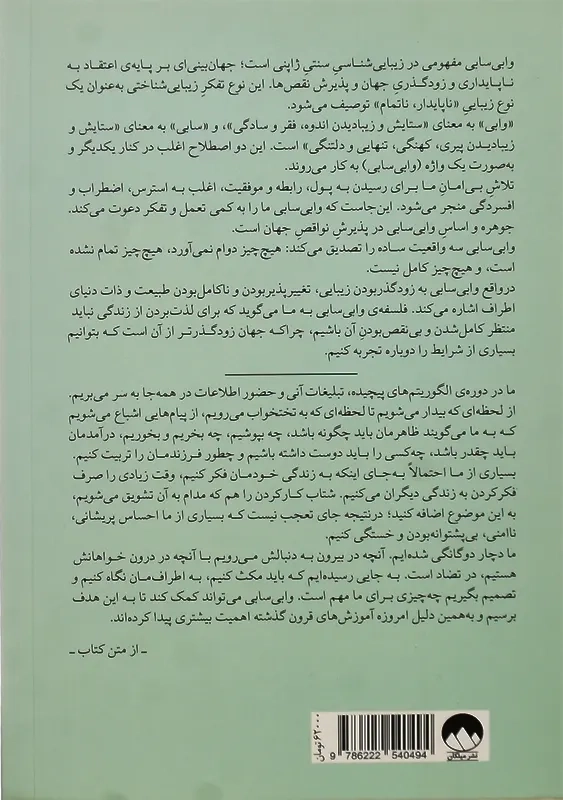 وابی‌سابی مفهومی در زیبایی‌شناسیِ سنتیِ ژاپنی است؛ جهان‌بینی‌ای بر پایه‌ی اعتقاد به
ناپایداری و زودگذریِ جهان و پذیرش نقص‌ها. این نوع تفکرِ زیبایی‌شناختی به‌عنوان یک
نوع زیباییِ «ناپایدار، ناتمام» توصیف می‌شود.
«وابی» به معنای «ستایش و زیبادیدن اندوه، فقر و سادگی»، و «سابی» به معنای «ستایش و
زیبادیدن پیری، کهنگی، تنهایی و دلتنگی» است. این دو اصطلاح اغلب در کنار یکدیگر و
به‌صورت یک واژه (وابی‌سابی) به کار می‌روند.
تلاش بی‌امانِ ما برای رسیدن به پول، رابطه و موفقیت، اغلب به استرس، اضطراب و
افسردگی منجر می‌شود. این‌جاست که وابی‌سابی ما را به کمی تعمل و تفکر دعوت می‌کند.
جوهره و اساسِ وابی‌سابی در پذیرش نواقصِ جهان است.
وابی‌سابی سه واقعیت ساده را تصدیق می‌کند: هیچ‌چیز دوام نمی‌آورد، هیچ‌چیز تمام نشده
است، و هیچ‌چیز کامل نیست.
درواقع وابی‌سابی به زودگذربودن زیبایی، تغییرپذیربودن و ناکامل‌بودن طبیعت و ذات دنیای
اطراف اشاره می‌کند. فلسفه‌ی وابی‌سابی به ما می‌گوید که برای لذت‌بردن از زندگی نباید
منتظر کامل‌شدن و بی‌نقص‌بودنِ آن باشیم، چراکه جهان زودگذرتر از آن است که بتوانیم
بسیاری از شرایط را دوباره تجربه کنیم.
ما در دوره‌ی الگوریتم‌های پیچیده، تبلیغات آنی و حضور اطلاعات در همه‌جا به سر می‌بریم.
از لحظه‌ای که بیدار می‌شویم تا لحظه‌ای که به تختخواب می‌رویم، از پیام‌هایی اشباع می‌شویم
که به ما می‌گویند ظاهرمان باید چگونه باشد، چه بپوشیم، چه بخریم و بخوریم، درآمدمان
باید چقدر باشد، چه‌کسی را باید دوست داشته باشیم و چطور فرزندمان را تربیت کنیم.
بسیاری از ما احتمالاً به‌جای اینکه به زندگی خودمان فکر کنیم، وقت زیادی را صرف
فکرکردن به زندگی دیگران می‌کنیم. شتاب کارکردن را هم که مدام به آن تشویق می‌شویم،
به این موضوع اضافه کنید؛ درنتیجه جای تعجب نیست که بسیاری از ما احساس پریشانی،
ناامنی، بی‌پشتوانه‌بودن و خستگی کنیم.
ما دچار دوگانگی شده‌ایم. آنچه در بیرون به دنبالش می‌رویم با آنچه در درون خواهانش
هستیم، در تضاد است. به جایی رسیده‌ایم که باید مکث کنیم، به اطراف‌مان نگاه کنیم و
تصمیم بگیریم چه‌چیزی برای ما مهم است. وابی‌سابی می‌تواند کمک کند تا به این هدف
برسیم و به‌همین دلیل امروزه آموزش‌های قرون گذشته اهمیت بیشتری پیدا کرده‌اند.
ـ از متن کتاب ـ
۶۲۰۰۰ تومان
9 786222 540494
نشر میلکان